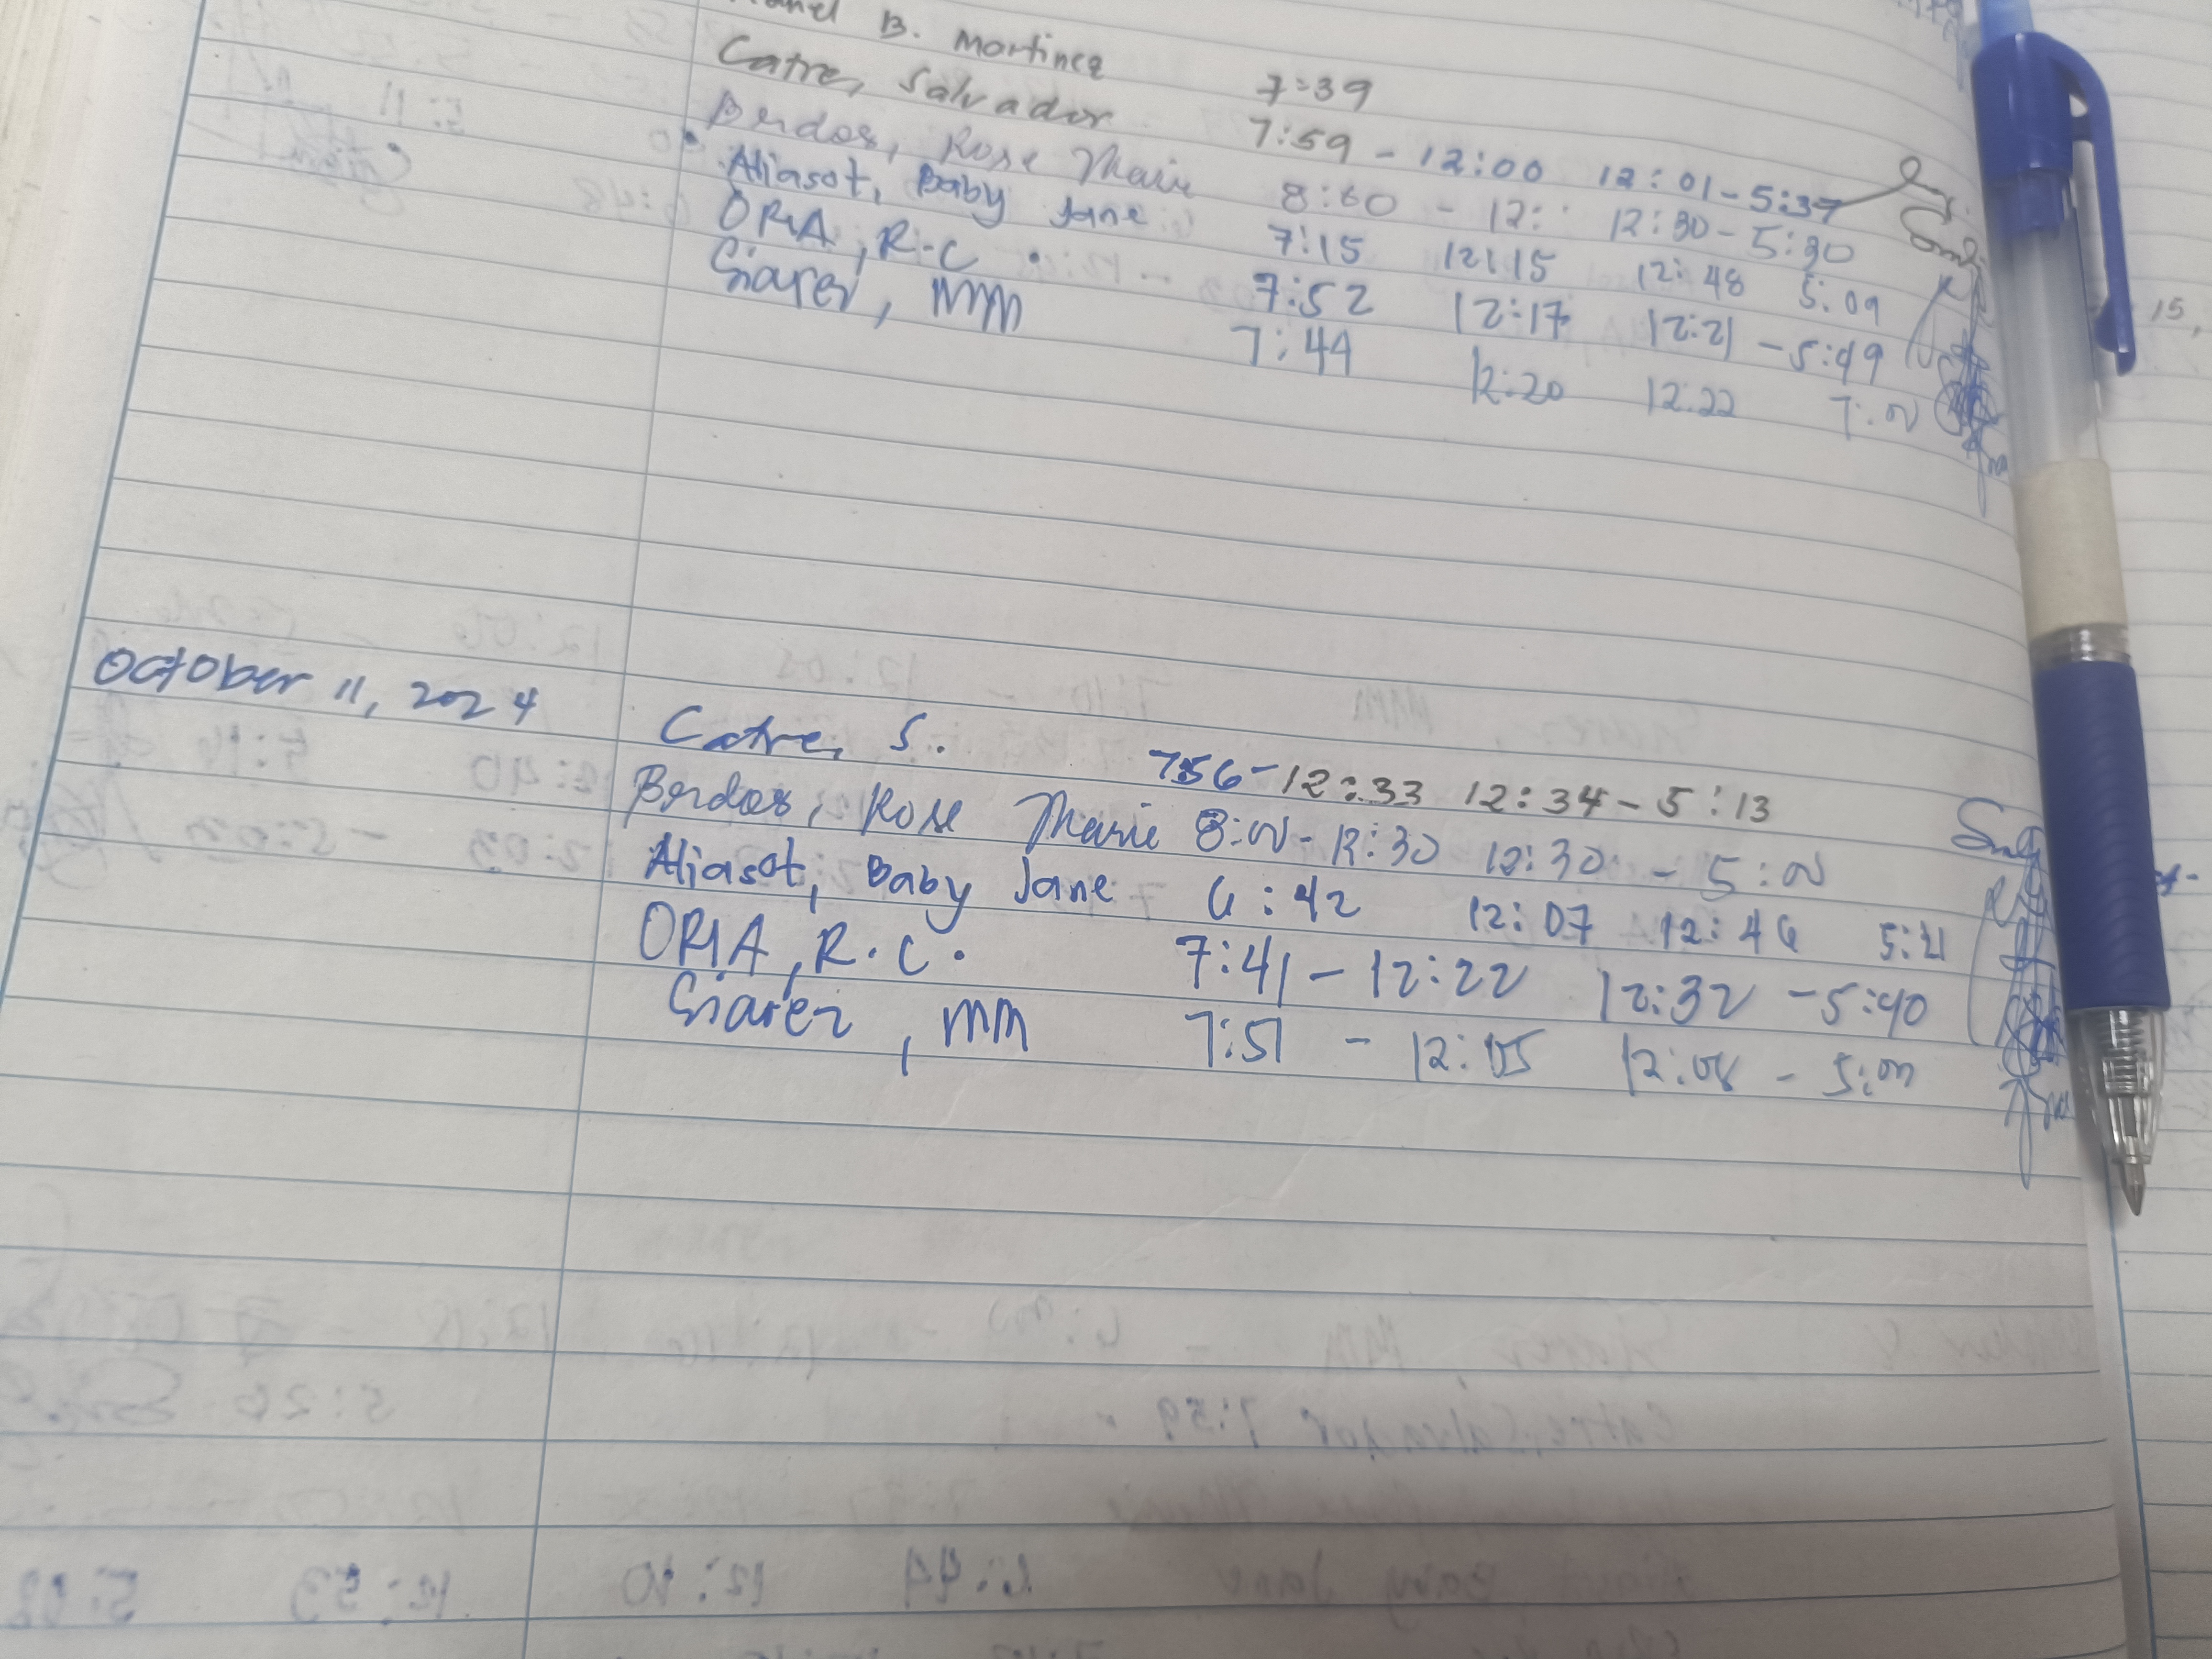 B. Martinez 7:39
Catre, Salvador 7:59 - 12:00 12:01 - 5:37
Berdos, Rose Marie 8:00 - 12: 12:30 - 5:30
Aliasot, Baby Jane 7:15 12:15 12:48 5:09
ORIA, R.C. 7:52 12:17 12:21 - 5:49
Siarez, MM 7:44 12:20 12:22 7:00
October 11, 2024
Catre, S. 7:56 - 12:33 12:34 - 5:13
Berdos, Rose Marie 8:00 - 12:30 12:30 - 5:00
Aliasot, Baby Jane 6:42 12:07 12:46 5:21
ORIA, R.C. 7:41 - 12:22 12:32 - 5:40
Siarez, MM 7:51 - 12:05 12:08 - 5:00
15,